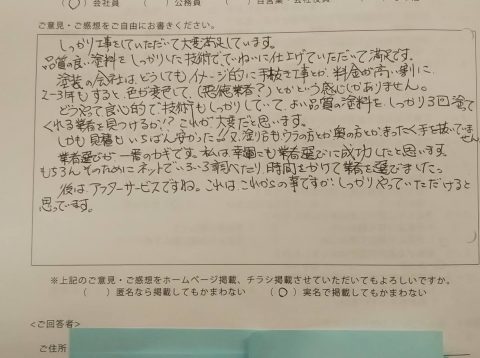 (○)会社員　(　)公務員　(　)自営業・会社役員
ご意見・ご感想をご自由にお書きください。
しっかり工事をしていただいて大変満足しています。
品質の良い塗料をしっかりした技術で、ていねいに仕上げていただいて満足です。
塗装の会社は、どうしてもイメージ的に手抜き工事とか、料金が高い割に
2〜3年もすると、色が変色して、(悪徳業者?)とかという感じがありません。
どうやって良心的で技術もしっかりしていて、よい品質の塗料を、しっかり3回塗って
くれる業者を見つけるか!? これが大変だと思います。
しかも見積もいちばん安かった!! 又、塗り方もウラの方とか奥の方とか、まったく手を抜いてません
業者選びが一番のカギです。私は幸運にも業者選びに成功したと思います。
もちろんそのためにネットでいろいろ調べたり、時間をかけて業者を選びました。
後は、アフターサービスですね。これは、これからの事ですが、しっかりやっていただけると
思っています。
※上記のご意見・ご感想をホームページ掲載、チラシ掲載させていただいてもよろしいですか。
(　)匿名なら掲載してもかまわない　(○)実名で掲載してもかまわない
<ご回答者>
ご住所